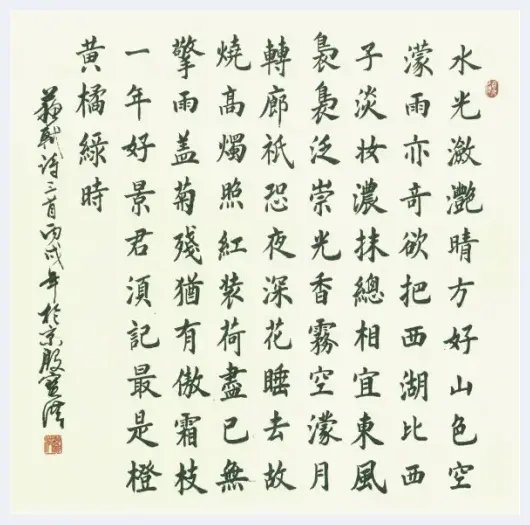 水光潋灧晴方好山色空
濛雨亦奇欲把西湖比西
子淡妆濃抹總相宜東風
裊裊泛崇光香霧空濛月
轉廊祇恐夜深花睡去故
燒高燭照紅裝荷盡已無
擎雨盖菊殘猶有傲霜枝
一年好景君須記最是橙
黃橘綠時
蘇軾詩三首丙戌年於京殷寶洪